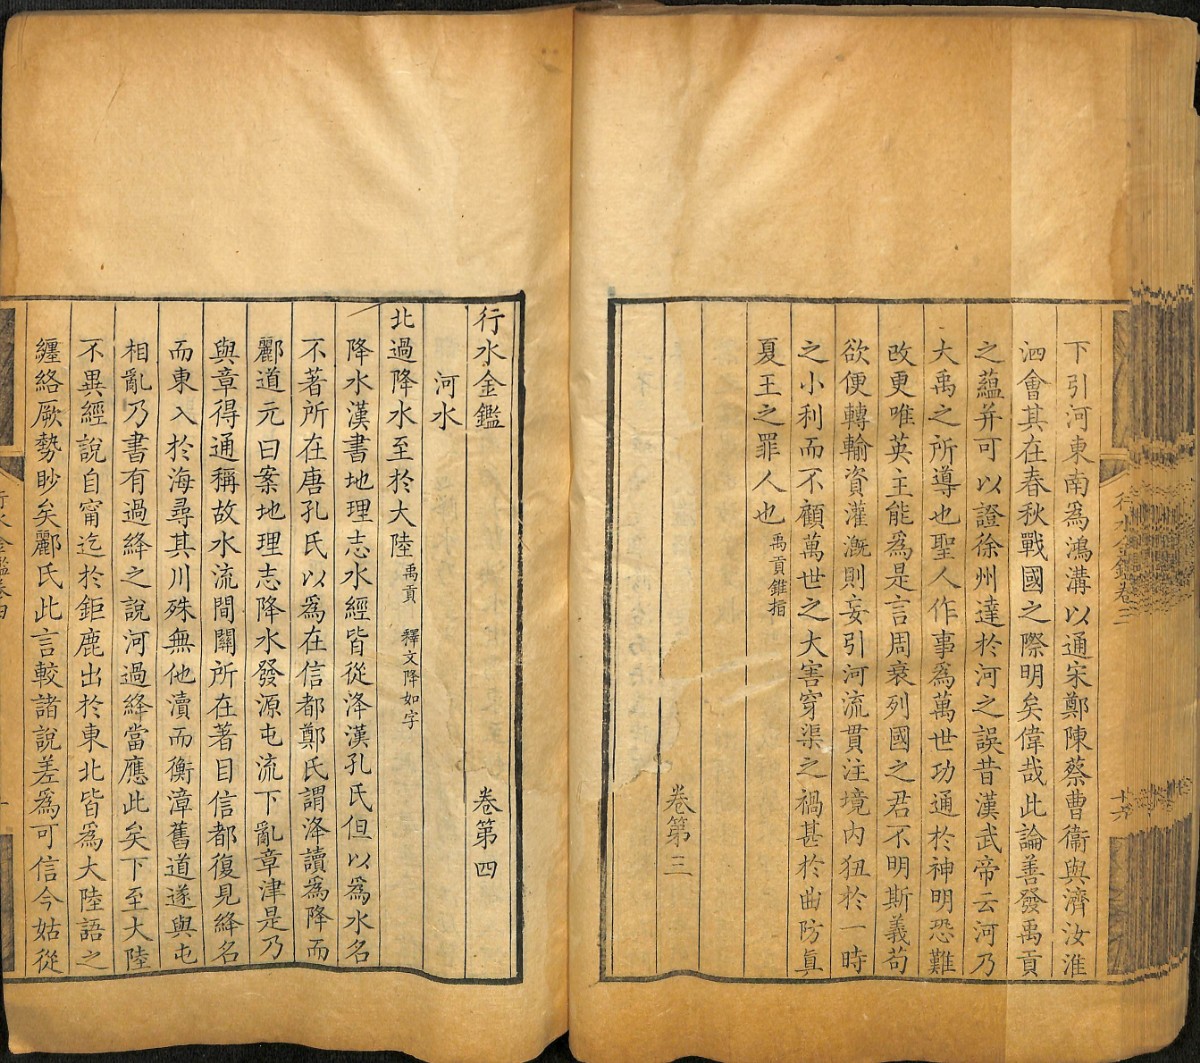 下引河東南爲鴻溝以通宋鄭陳蔡曹衞與濟汝淮
泗會其在春秋戰國之際明矣偉哉此論善發禹貢
之蘊并可以證徐州達於河之誤昔漢武帝云河乃
大禹之所導也聖人作事爲萬世功通於神明恐難
改更唯英主能爲是言周衰列國之君不明斯義苟
欲便轉輸資灌漑則妄引河流貫注境內狃於一時
之小利而不顧萬世之大害穿渠之禍甚於曲防眞
夏王之罪人也禹貢錐指
卷第三
行水金鑑卷三
十六
行水金鑑 卷第四
河水
北過降水至於大陸禹貢 釋文降如字
降水漢書地理志水經皆從洚漢孔氏但以爲水名
不著所在唐孔氏以爲在信都鄭氏謂洚讀爲降而
酈道元曰案地理志降水發源屯流下亂章津是乃
與章得通稱故水流間關所在著目信都復見絳名
而東入於海尋其川殊無他瀆而衡漳舊道遂與屯
相亂乃書有過絳之說河過絳當應此矣下至大陸
不異經說自甯迄於鉅鹿出於東北皆爲大陸語之
纏絡厥勢眇矣酈氏此言較諸說差爲可信今姑從
行水金鑑卷四
一